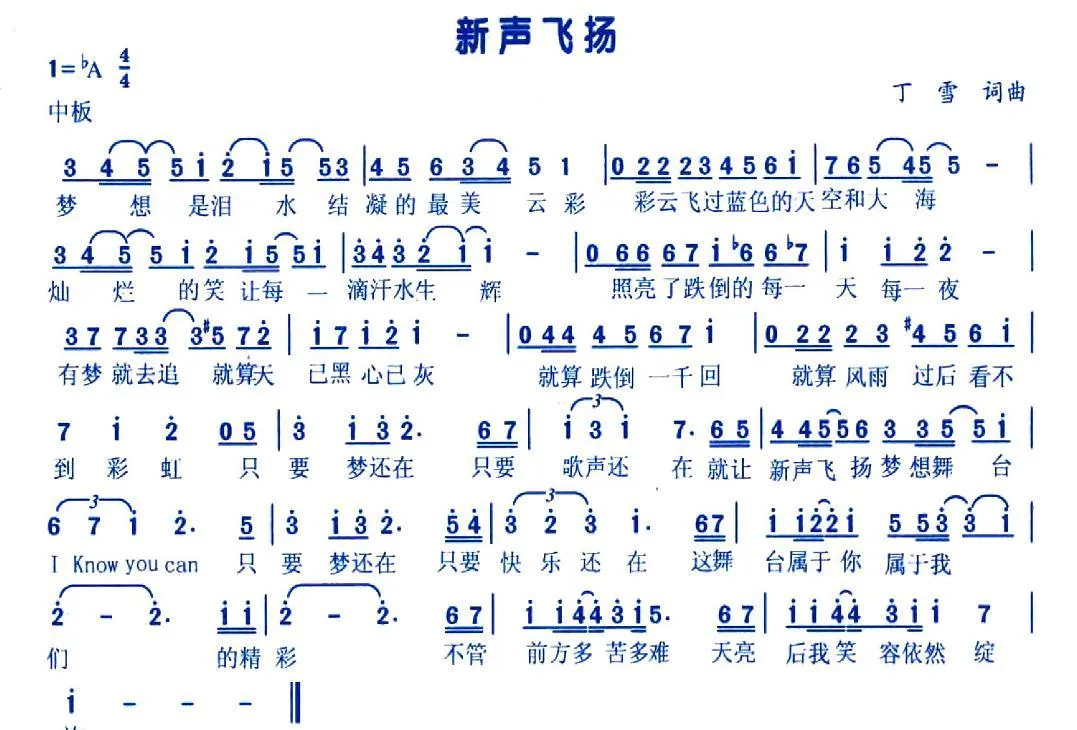 新声飞扬
1=♭A 4/4
丁 雪 词曲
中板
3 4 5 5 i 2 i 5 5 3 | 4 5 6 3 4 5 1 | 0 2 2 2 3 4 5 6 i | 7 6 5 4 5 5 - |
梦 想 是泪 水 结 凝的最美 云彩 彩云飞过蓝色的天空和大 海
3 4 5 5 i 2 i 5 5 i | 3 4 3 2 i i - | 0 6 6 6 7 i ♭6 6 ♭7 | i i 2 2 - |
灿 烂 的笑 让每 一 滴汗水生 辉 照亮了跌倒的每一 天 每一夜
3 7 7 3 3 3 #5 7 2 | i 7 i 2 i - | 0 4 4 4 5 6 7 i | 0 2 2 2 3 #4 5 6 i |
有梦就去追 就算天 已黑心已灰 就算跌倒一千回 就算风雨过后看不
7 i 2 0 5 | 3 i 3 2. 6 7 | i 3 i 7. 6 5 | 4 4 5 5 6 3 3 5 5 i |
到彩虹 只要 梦还在 只要 歌声还 在就让 新声飞扬梦想舞 台
6 7 i 2. 5 | 3 i 3 2. 5 4 | 3 2 3 i. 6 7 | i i 2 2 i 5 5 3 3 i |
I Know you can 只要 梦还在 只要快乐还在 这舞 台属于你 属于我
2 - 2. i i | 2 - 2. 6 7 | i i 4 4 3 i 5. 6 7 | i i 4 4 3 i i 7 |
们 的精彩 不管 前方多苦多难 天亮 后我笑容依然 绽
i - - - ‖